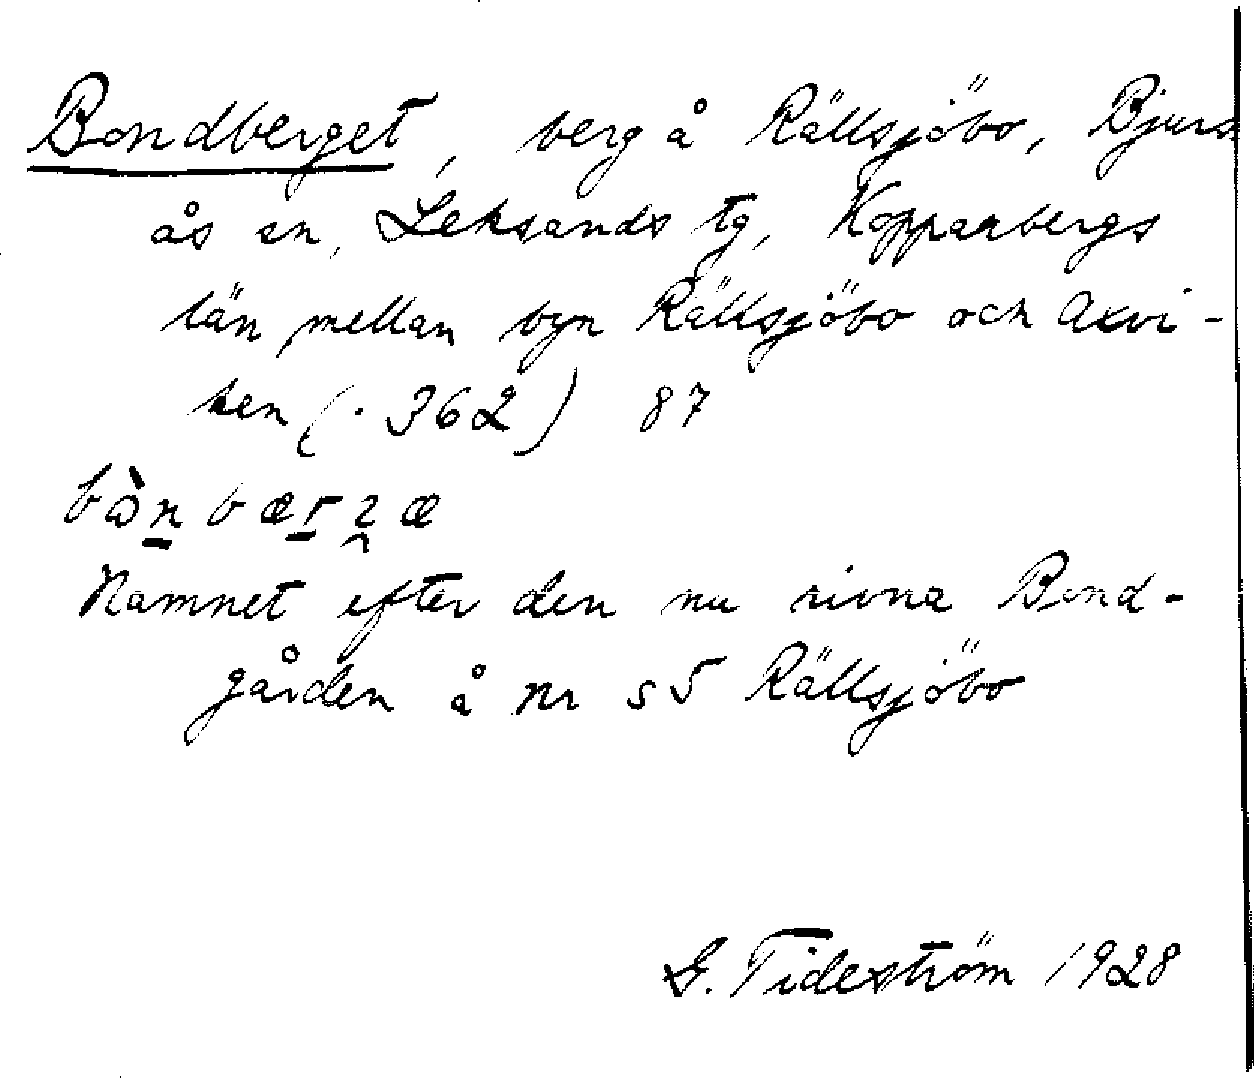 Bondberget, berg å Rällsjöbo, Bjurs
ås sn, Leksands tg, Kopparbergs
län mellan byn Rällsjöbo och Axvi-
ken (. 362) 87
Namnet efter den nu rivna Bond-
gården å nr s5 Rällsjöbo
G. Tideström 1928